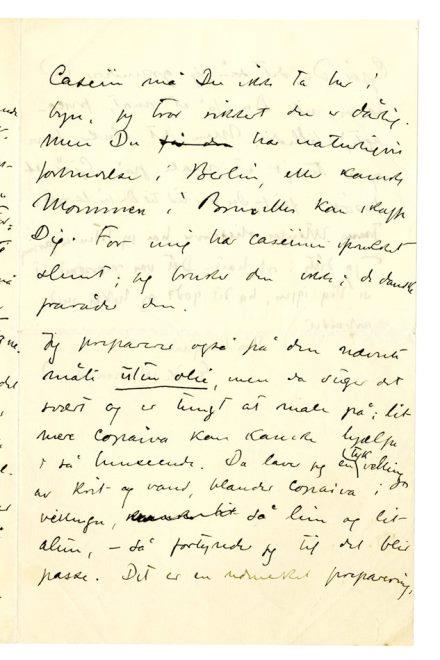 Caseïn må Du ikke ta her i
byn, jeg tror sikkert den er dårlig.
Men Du har naturligvis
forbindelse i Berlin, eller kanske
Mommen i Bruxelles kan skaffe
Dig. For mig har caseinen
slemt; jeg bruker den ikke; de danske
fraråder den.
Jeg preparerer også på den nævnte
måte uten olie, men da suger det
svært og er tungt at male på; lit
mere copaiva kan kanske hjælpe
i så henseende. Da laver jeg en tyk velling
av krit og vand, blander copaiva i
vellingen, så lim og lit
alun, – så fortynder jeg til det blir
passe. Det er en udmerket preparering,